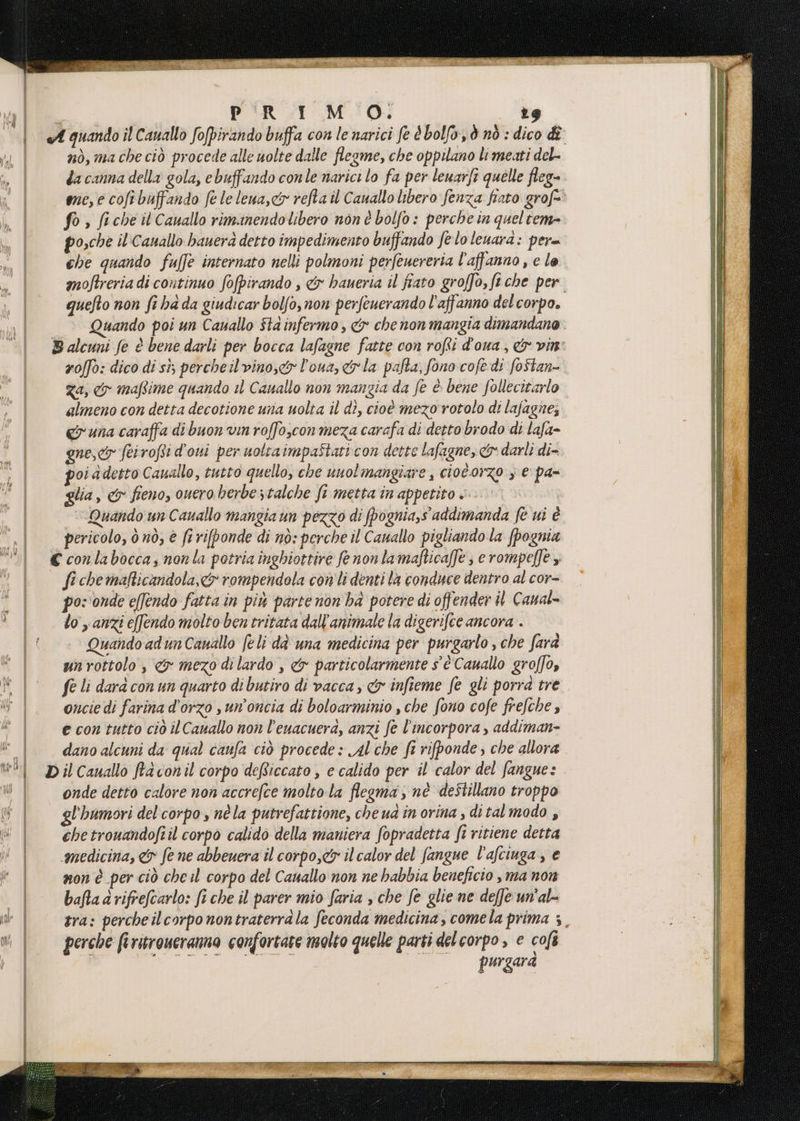 PRIMO. 19
A quando il Cauallo ſoſpirando buffa con le narici ſe è bolſo, ò nò : dico di
nò, ma che ciò procede alle uolte dalle flegme, che oppilano li meati del-
la canna della gola, e buffando con le narici lo fa per leuarſi quelle fleg-
me, e coſi buffando ſe le leua, & reſta il Cauallo libero ſenza fiato groſ-
ſo, ſi che il Cauallo rimanendo libero non è bolſo: perche in quel tem-
po, che il Cauallo hauerà detto impedimento buffando ſe lo leuarà: per-
che quando fuſſe internato nelli polmoni perſeuereria l'affanno, e lo
moſtreria di continuo ſoſpirando, & haueria il fiato groſſo, ſi che per
queſto non ſi hà da giudicar bolſo, non perſeuerando l'affanno del corpo.
Quando poi un Cauallo ſtà infermo, & che non mangia dimandano
B alcuni ſe è bene darli per bocca laſagne fatte con roſſi d'oua, & vin
roſſo: dico di sì, perche il vino, & l'oua, & la paſta, ſono coſe di ſoſtan-
za, & maſſime quando il Cauallo non mangia da ſe è bene ſollecitarlo
almeno con detta decotione una uolta il dì, cioè mezo rotolo di laſagne,
& una caraffa di buon vin roſſo, con meza carafa di detto brodo di laſa-
gne, & ſei roſſi d'oui per uolta impaſtati con dette laſagne, & darli di-
poi à detto Cauallo, tutto quello, che uuol mangiare, cioè orzo, e pa-
glia, & fieno, ouero herbe, talche ſi metta in appetito.
Quando un Cauallo mangia un pezzo di ſpognia, s'addimanda ſe ui è
pericolo, ò nò, e ſi riſponde di nò: perche il Cauallo pigliando la ſpognia
C con la bocca, non la potria inghiottire ſe non la maſticaſſe, e rompeſſe,
ſi che maſticandola, & rompendola con li denti la conduce dentro al cor-
po: onde eſſendo fatta in più parte non hà potere di offender il Caual-
lo, anzi eſſendo molto ben tritata dall'animale la digeriſce ancora.
Quando ad un Cauallo ſe li dà una medicina per purgarlo, che ſarà
un rottolo, & mezo di lardo, & particolarmente s'è Cauallo groſſo,
ſe li darà con un quarto di butiro di vacca, & inſieme ſe gli porrà tre
oncie di farina d'orzo, un'oncia di boloarminio, che ſono coſe freſche,
e con tutto ciò il Cauallo non l'euacuerà, anzi ſe l'incorpora, addiman-
dano alcuni da qual cauſa ciò procede: Al che ſi riſponde, che allora
D il Cauallo ſtà con il corpo deſiccato, e calido per il calor del ſangue:
onde detto calore non accreſce molto la flegma, nè deſtillano troppo
gl'humori del corpo, nè la putrefattione, che uà in orina, di tal modo,
che trouandoſi il corpo calido della maniera ſopradetta ſi ritiene detta
medicina, & ſe ne abbeuera il corpo, & il calor del ſangue l'aſciuga, e
non è per ciò che il corpo del Cauallo non ne habbia beneficio, ma non
baſta à rifreſcarlo: ſi che il parer mio ſaria, che ſe glie ne deſſe un'al-
tra: perche il corpo non traterrà la ſeconda medicina, come la prima;
perche ſi ritroueranno confortate molto quelle parti del corpo, e coſi
purgarà